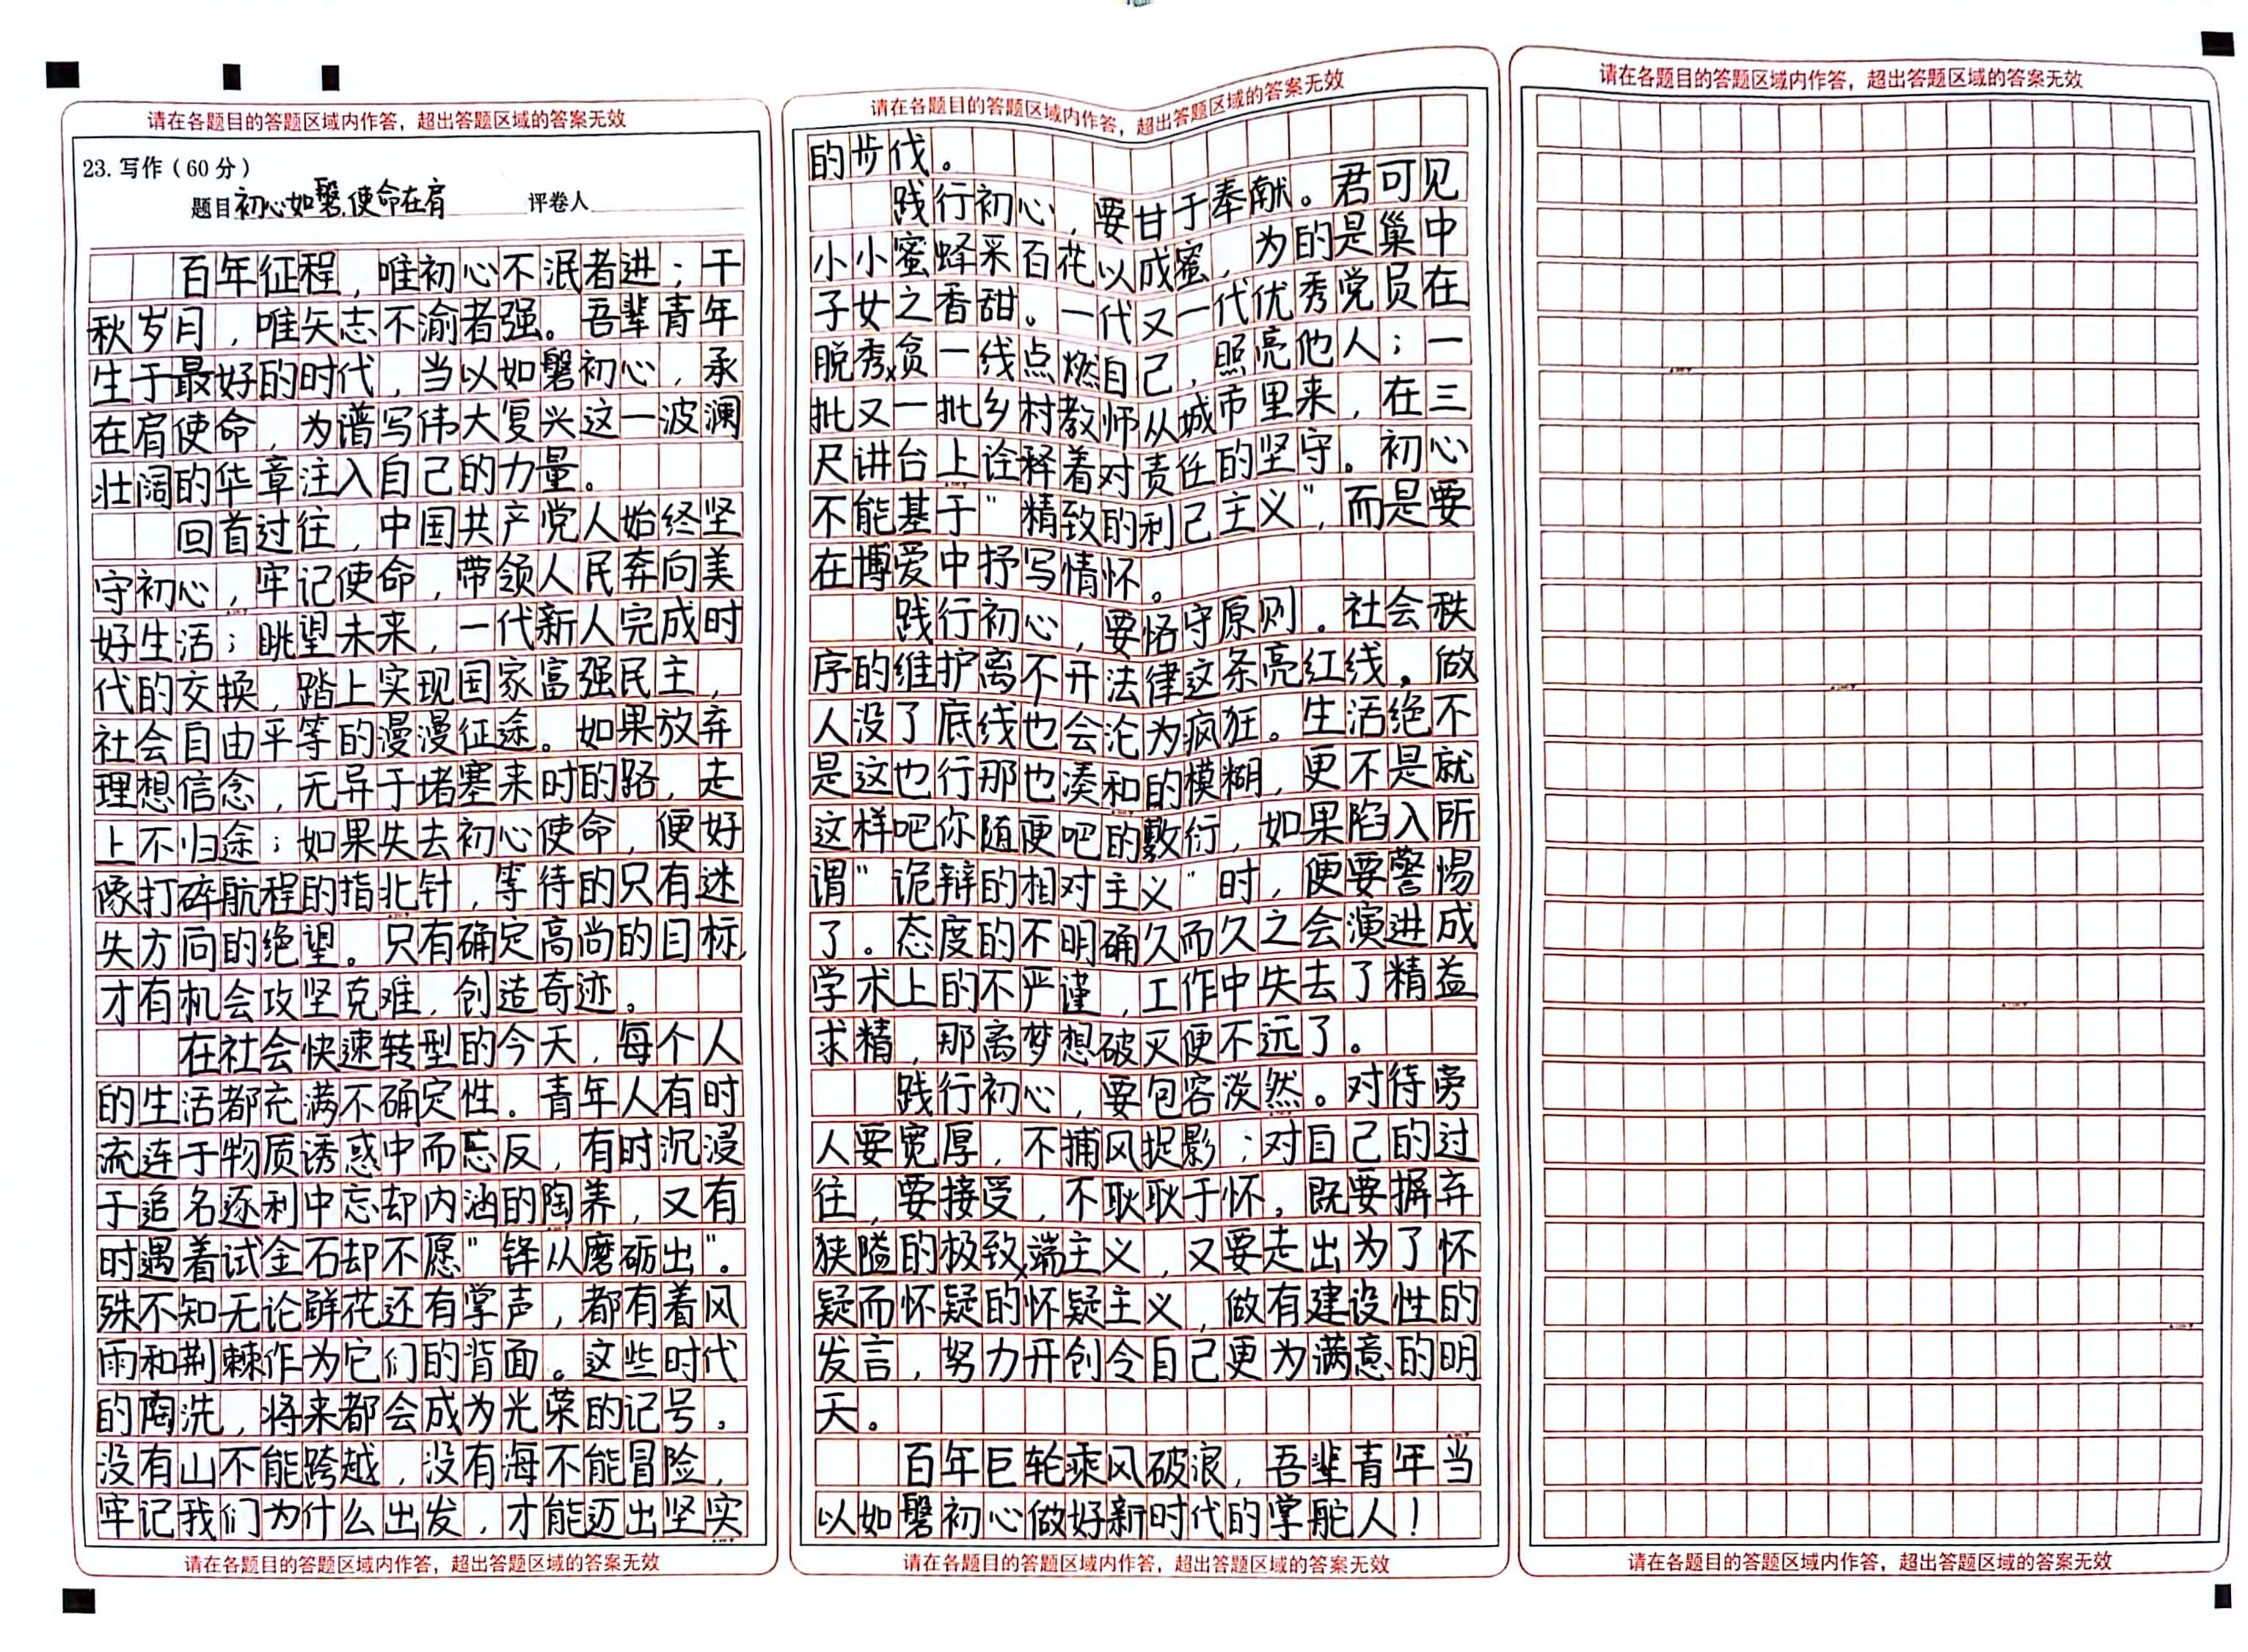 请在各题目的答题区域内作答，超出答题区域的答案无效
23. 写作（60 分）
题目 初心如磐,使命在肩 评卷人
百年征程，唯初心不泯者进；千
秋岁月，唯矢志不渝者强。吾辈青年
生于最好的时代，当以如磐初心，承
在肩使命，为谱写伟大复兴这一波澜
壮阔的华章注入自己的力量。
回首过往，中国共产党人始终坚
守初心，牢记使命，带领人民奔向美
好生活；眺望未来，一代新人完成时
代的交换，踏上实现国家富强民主，
社会自由平等的漫漫征途。如果放弃
理想信念，无异于堵塞来时的路，走
上不归途；如果失去初心使命，便好
像打碎航程的指北针，等待的只有迷
失方向的绝望。只有确定高尚的目标，
才有机会攻坚克难，创造奇迹。
在社会快速转型的今天，每个人
的生活都充满不确定性。青年人有时
流连于物质诱惑中而忘反，有时沉浸
于追名逐利中忘却内涵的陶养，又有
时遇着试金石却不愿“锋从磨砺出”。
殊不知无论鲜花还有掌声，都有着风
雨和荆棘作为它们的背面。这些时代
的陶洗，将来都会成为光荣的记号。
没有山不能跨越，没有海不能冒险，
牢记我们为什么出发，才能迈出坚实
请在各题目的答题区域内作答，超出答题区域的答案无效
请在各题目的答题区域内作答，超出答题区域的答案无效
的步伐。
践行初心，要甘于奉献。君可见
小小蜜蜂采百花以成蜜，为的是巢中
子女之香甜。一代又一代优秀党员在
脱贫一线点燃自己，照亮他人；一
批又一批乡村教师从城市里来，在三
尺讲台上诠释着对责任的坚守。初心
不能基于“精致的利己主义”，而是要
在博爱中抒写情怀。
践行初心，要恪守原则。社会秩
序的维护离不开法律这条亮红线，做
人没了底线也会沦为疯狂。生活绝不
是这也行那也凑和的模糊，更不是就
这样吧你随便吧的敷衍，如果陷入所
谓“诡辩的相对主义”时，便要警惕
了。态度的不明确久而久之会演进成
学术上的不严谨，工作中失去了精益
求精，那离梦想破灭便不远了。
践行初心，要包容淡然。对待旁
人要宽厚，不捕风捉影；对自己的过
往，要接受，不耿耿于怀，既要摒弃
狭隘的极端主义，又要走出为了怀
疑而怀疑的怀疑主义，做有建设性的
发言，努力开创令自己更为满意的明
天。
百年巨轮乘风破浪，吾辈青年当
以如磐初心做好新时代的掌舵人！
请在各题目的答题区域内作答，超出答题区域的答案无效
请在各题目的答题区域内作答，超出答题区域的答案无效
请在各题目的答题区域内作答，超出答题区域的答案无效